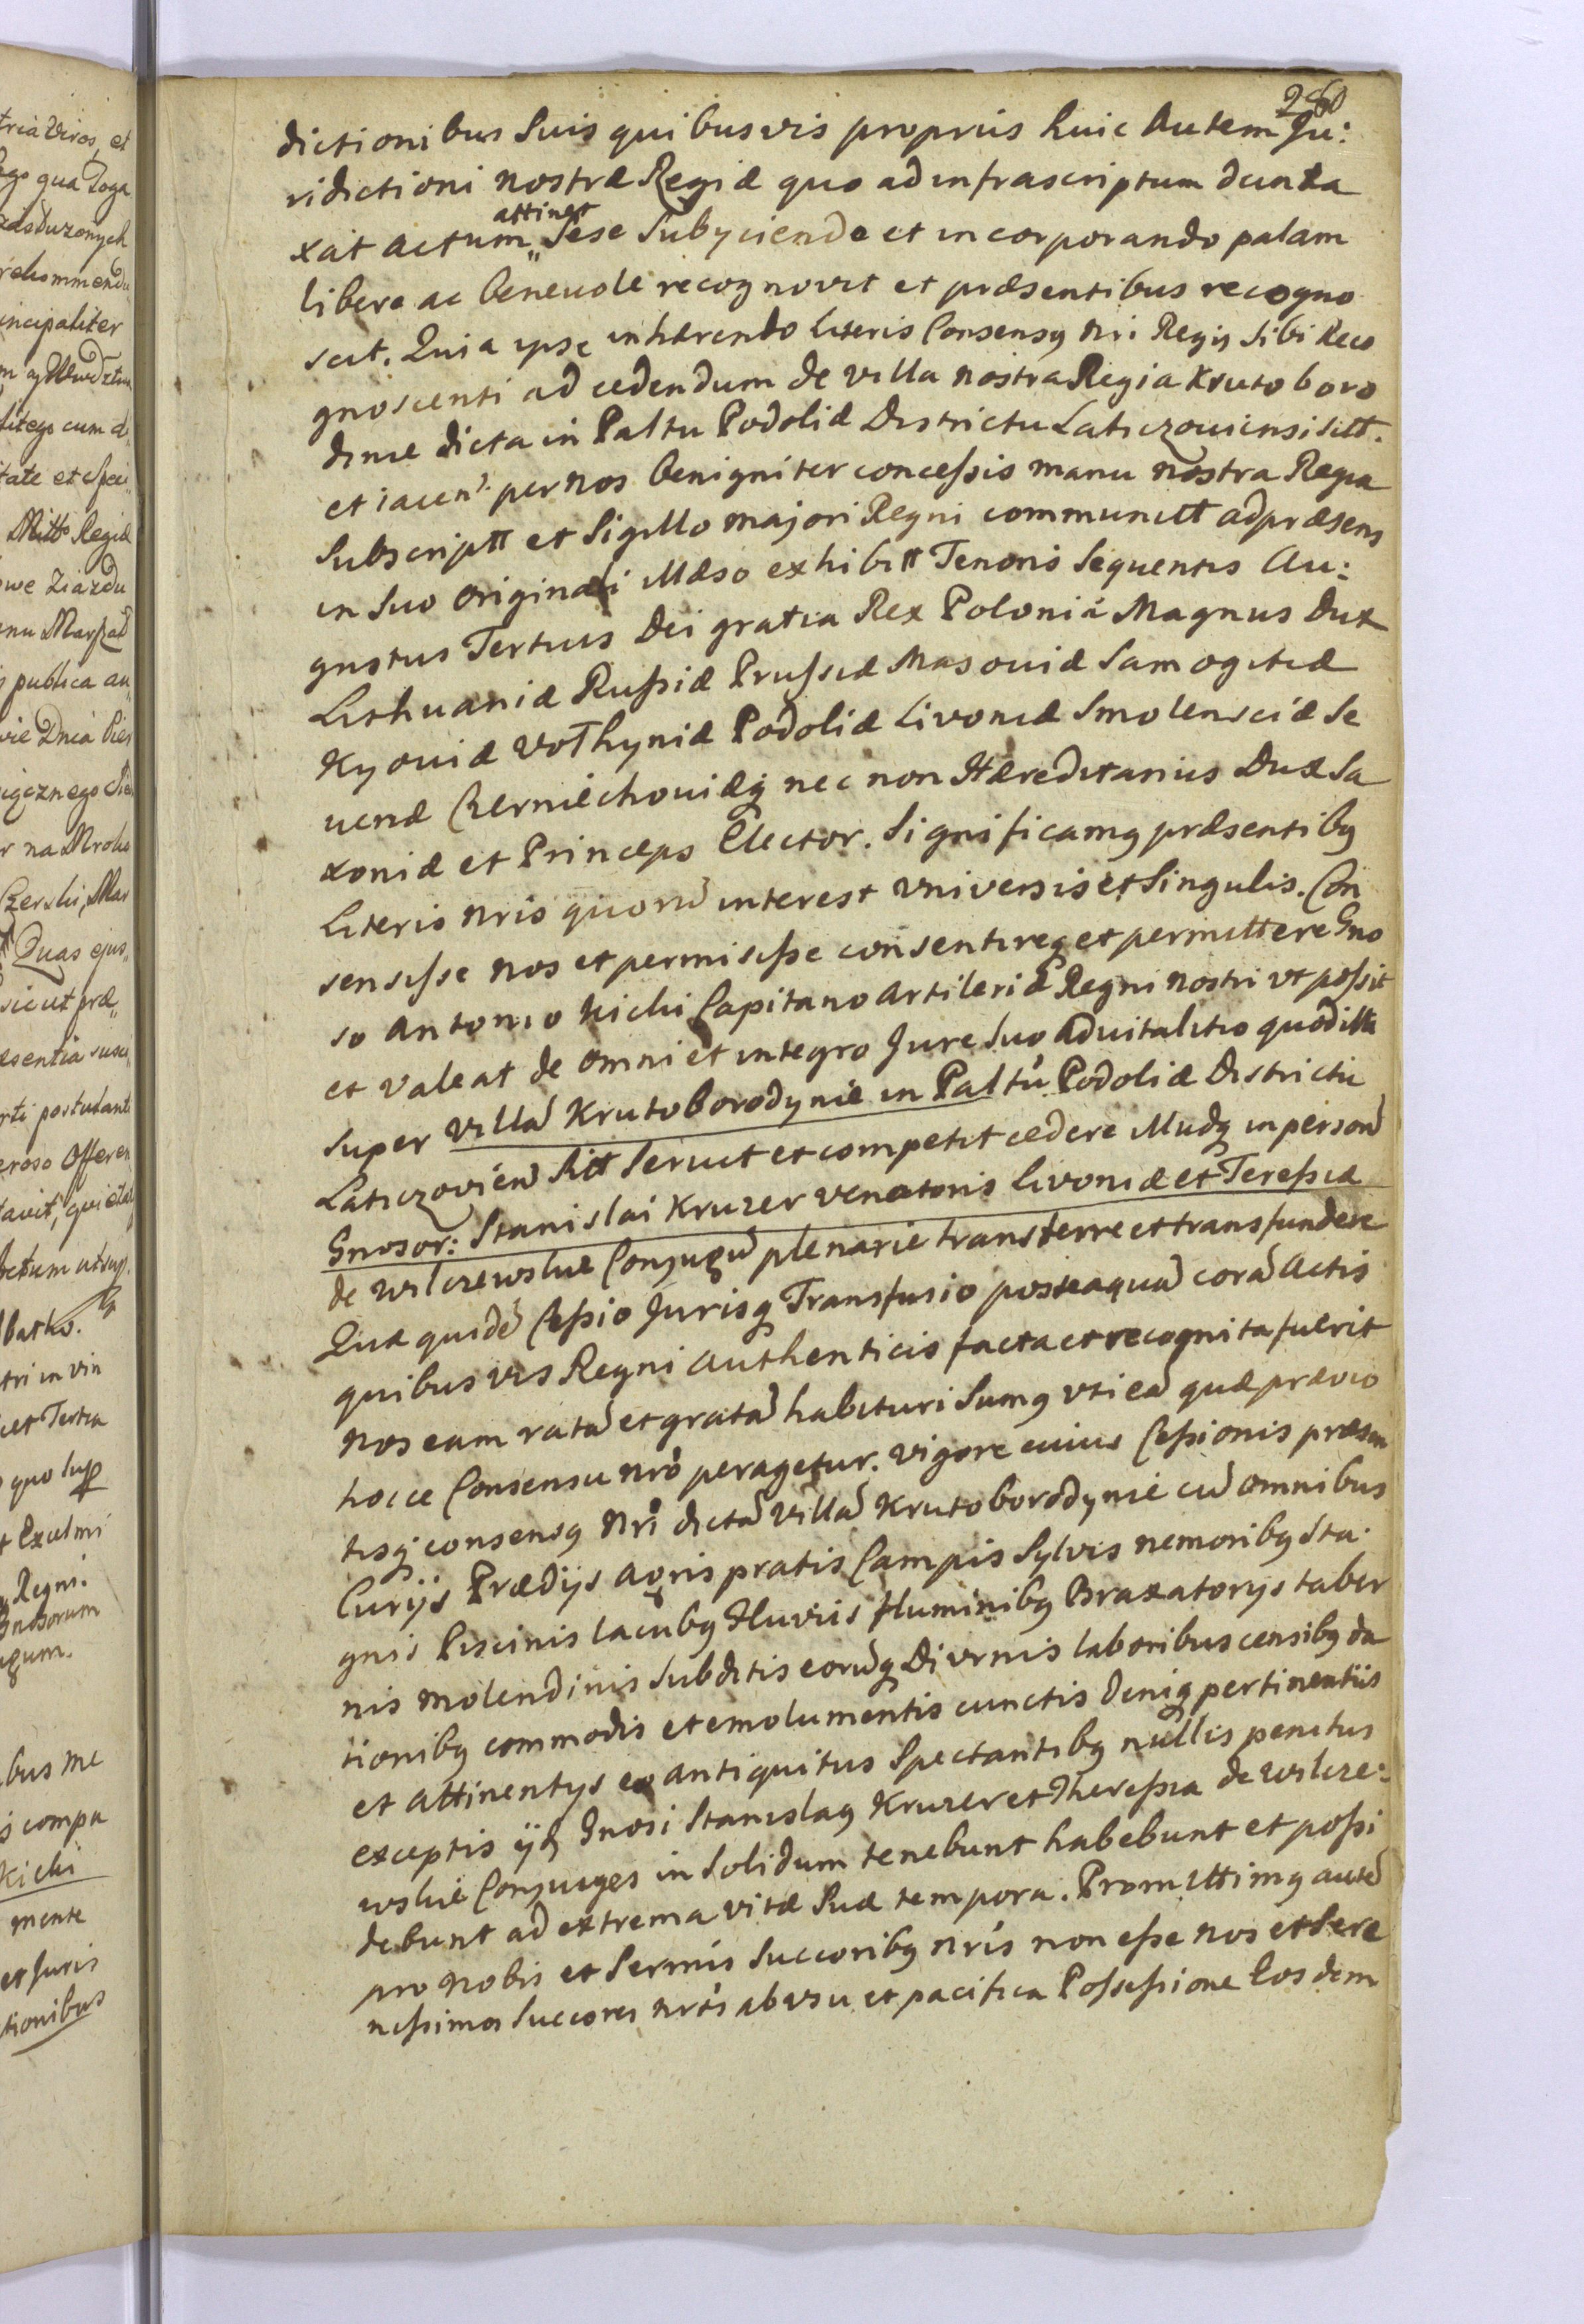 260
dictionibus Suis quibusvis propriis huic Autem Ju:
ridictioni nostræ Regiæ quo ad infrascriptum dunta
xat actum attinet Sese Subyciendo et incorporando palam
libere ac beneuole recognovit et præsentibus recogno
scit. Quia ipse inhærendo Literis Consensq nri Regij Sibi Reco
gnoscenti ad cedendum de villa nostra Regia Krutoboro
dinie dicta in Paltu Podoliæ Districtu Laticzouiensi sitt.
et iacen: per nos benigniter concessis manu nostra Regia
Subscriptt et Sigillo majori Regni communitt ad præsens
in Suo Originali illæso exhibitt Tenoris Sequentis Au:
gustus Tertius Dei gratia Rex Poloniæ Magnus Dux
Lithuaniæ Russiæ Prussiæ Masouiæ Samogitiæ
Kyouiæ Volhyniæ Podoliæ Livoniæ Smolensciæ Se
ueriæ Czerniechouiæq nec non Hæreditarius Dux Sa
xoniæ et Princeps Elector. Significamq præsentibq
Literis nris quorũ interest Vniversis et Singulis. Con
sensisse nos et permisisse consentireq et permittere Gno
so Antonio Kicki Capitano Artileriæ Regni nostri vt possit
et valeat de omni et integro Jure Suo aduitalitio quod illi
Super villã Krutoborodynie in Paltu Podoliæ Districtu
Laticzovien̄ Sitt Seruit et competit cedere illudq in personã
Gnosor: Stanislai Kruzer Venatoris Livoniæ et Teressiæ
de Wilczewskie Conjugũ plenarie transferre et transfundere
Quæ quidẽ Cessio Jurisq Transfusio posteaquã corã Actis
quibusvis Regni Authenticis facta et recognita fuerit
nos eam ratã et gratã habituri Sumq vti eã quæ prævio
hocce Consensu nrõ peragetur. Vigore cuius Cessionis præsen
tisq consensq nri dictã Villã Krutoborodynie cũ omnibus
Curijs Prædijs Agris pratis Campis Sylvis nemoribq Sta:
gnis Piscinis lacubq Fluviis Fluminibq Braxatorijs taber
nis molendinis Subditis eorũq Diurnis laboribus censibq da
tionibq commodis et emolumentis cunctis deniq pertinentiis
et attinentys eo antiquitus Spectantibq nullis penitus
exceptis ijd Gnosi Stanislaq Kruzer et Theressia de Wilcze:
wskie Conjuges in Solidum tenebunt habebunt et possi
debunt ad extrema vitæ Suæ tempora. Promittimq autẽ
pro Nobis et Sermis Succoribq nris non esse nos et Sere
nissimos Succores nros ab vsu et pacifica Possessione Eosdem